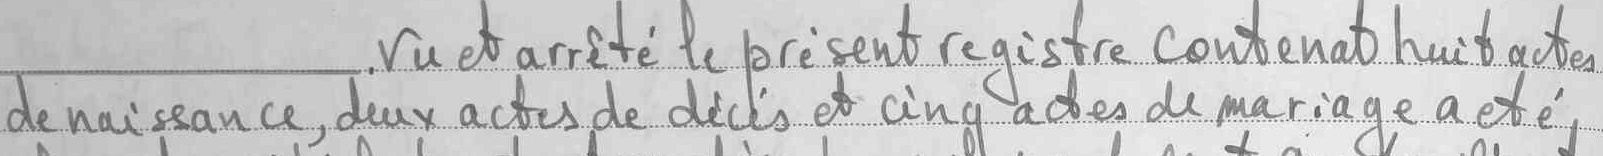 Vu et arrêté le présent registre contenat huit actes
de naissance, deux actes de décés et cinq actes de mariage a eté,